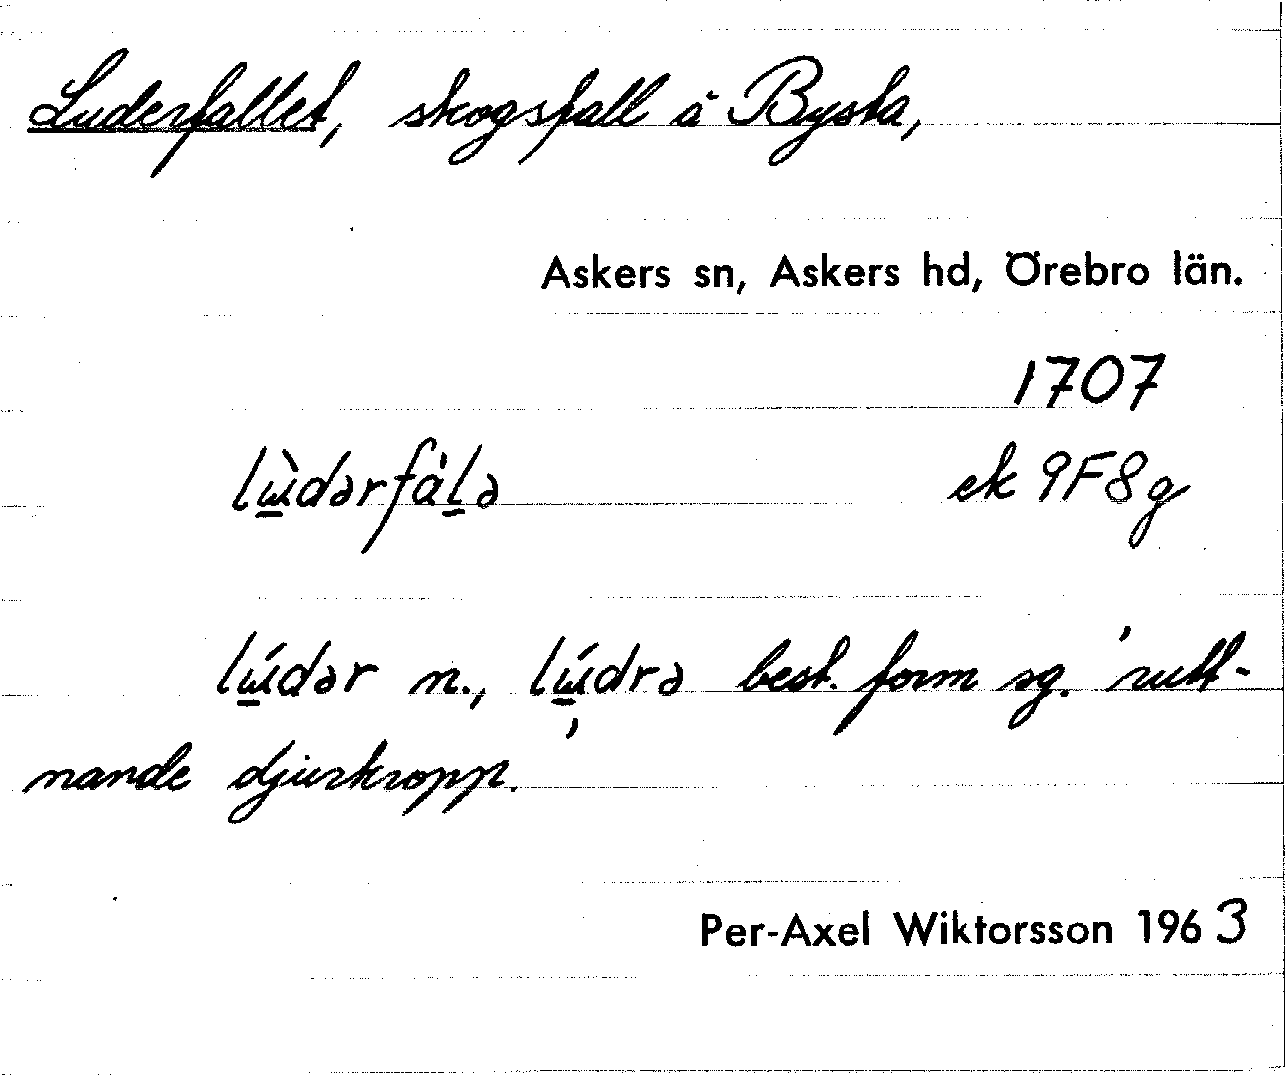 Luderfallet, skogsfall å Bysta,
Askers sn, Askers hd, Örebro län.
1707
lɯ̲̀dərfàl̲ə ek 9F8g
lɯ̲́dər n., lɯ̲́drə best. form sg. 'rutt-
nande djurkropp.'
Per-Axel Wiktorsson 1963